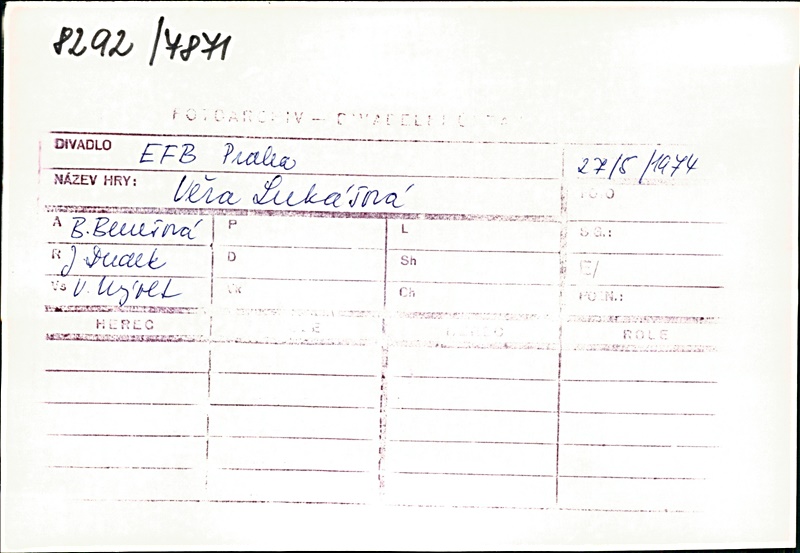 8292/7871
FOTOARCHIV – DIVADELNÍ
DIVADLO EFB Praha 27/5/1974
NÁZEV HRY: Věra Lukášová
FOTO
A B. Benešová P L
R J. Dudek D Sh
Vs Ch POZN.:
HEREC ROLE